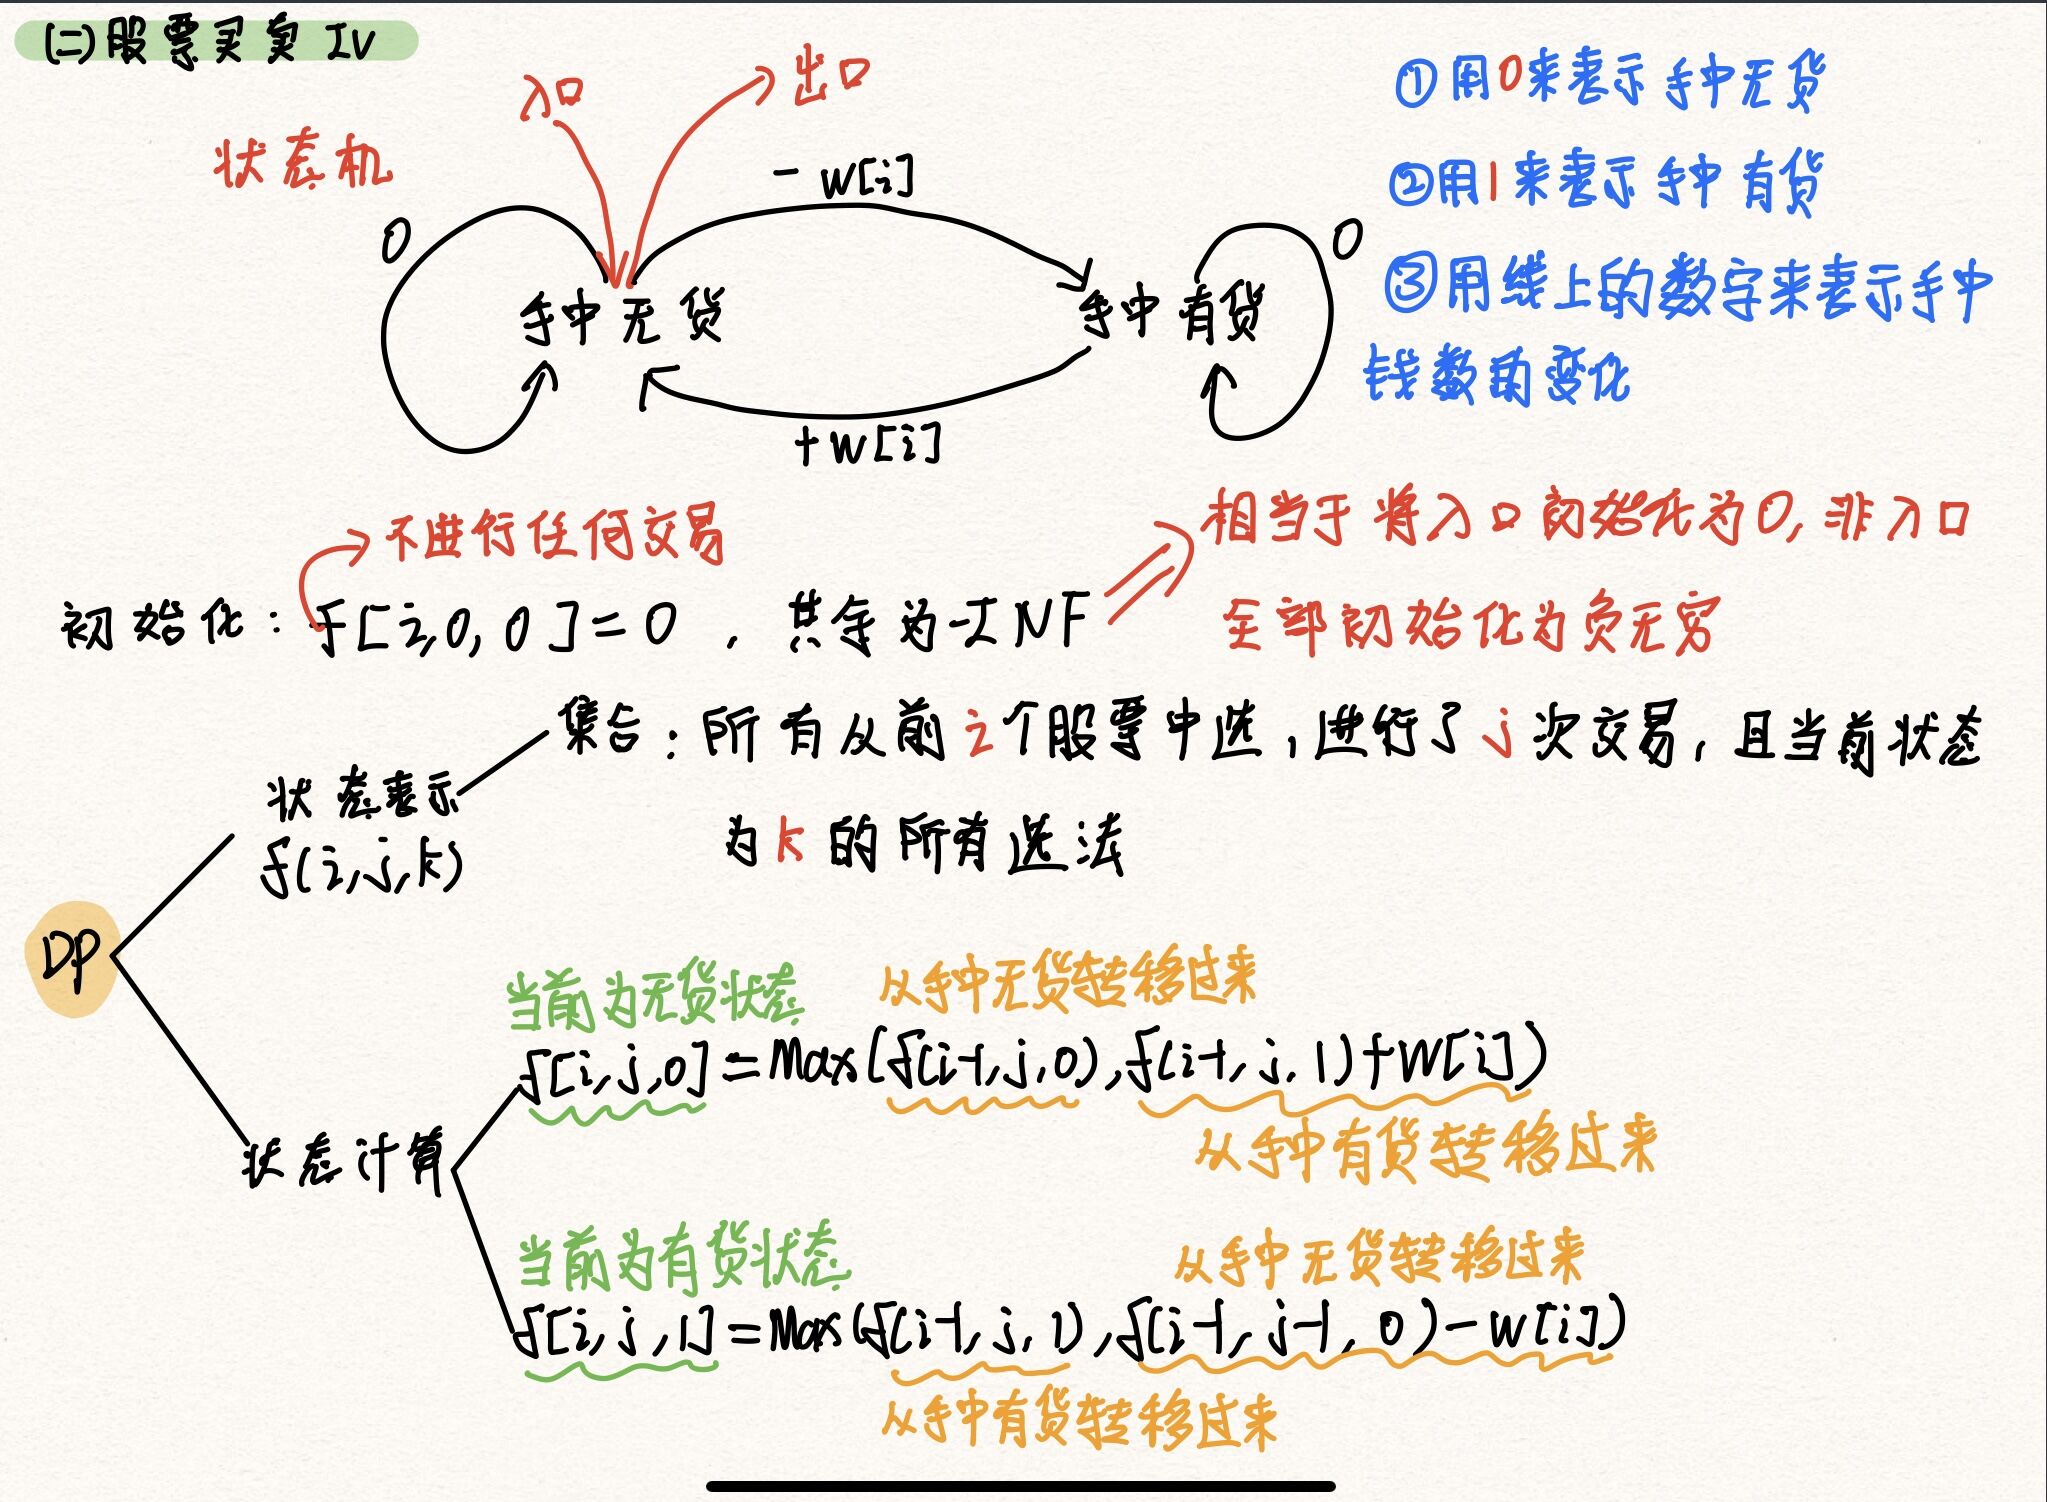 (二)股票买卖 IV
入口
出口
状态机
- w[i]
0
0
手中无货
手中有货
+w[i]
①用0来表示手中无货
②用1来表示手中有货
③用线上的数字来表示手中
钱数的变化
不进行任何交易
相当于将入口初始化为0,非入口
全部初始化为负无穷
初始化: f[i,0,0]=0 , 其余为-INF
集合:所有从前i个股票中选,进行了j次交易,且当前状态
为k的所有选法
状态表示
f(i,j,k)
DP
当前为无货状态
从手中无货转移过来
f[i,j,0]=Max(f(i-1,j,0),f(i-1,j,1)+W[i])
从手中有货转移过来
状态计算
当前为有货状态
从手中无货转移过来
f[i,j,1]=Max(f(i-1,j,1),f(i-1,j-1,0)-w[i])
从手中有货转移过来